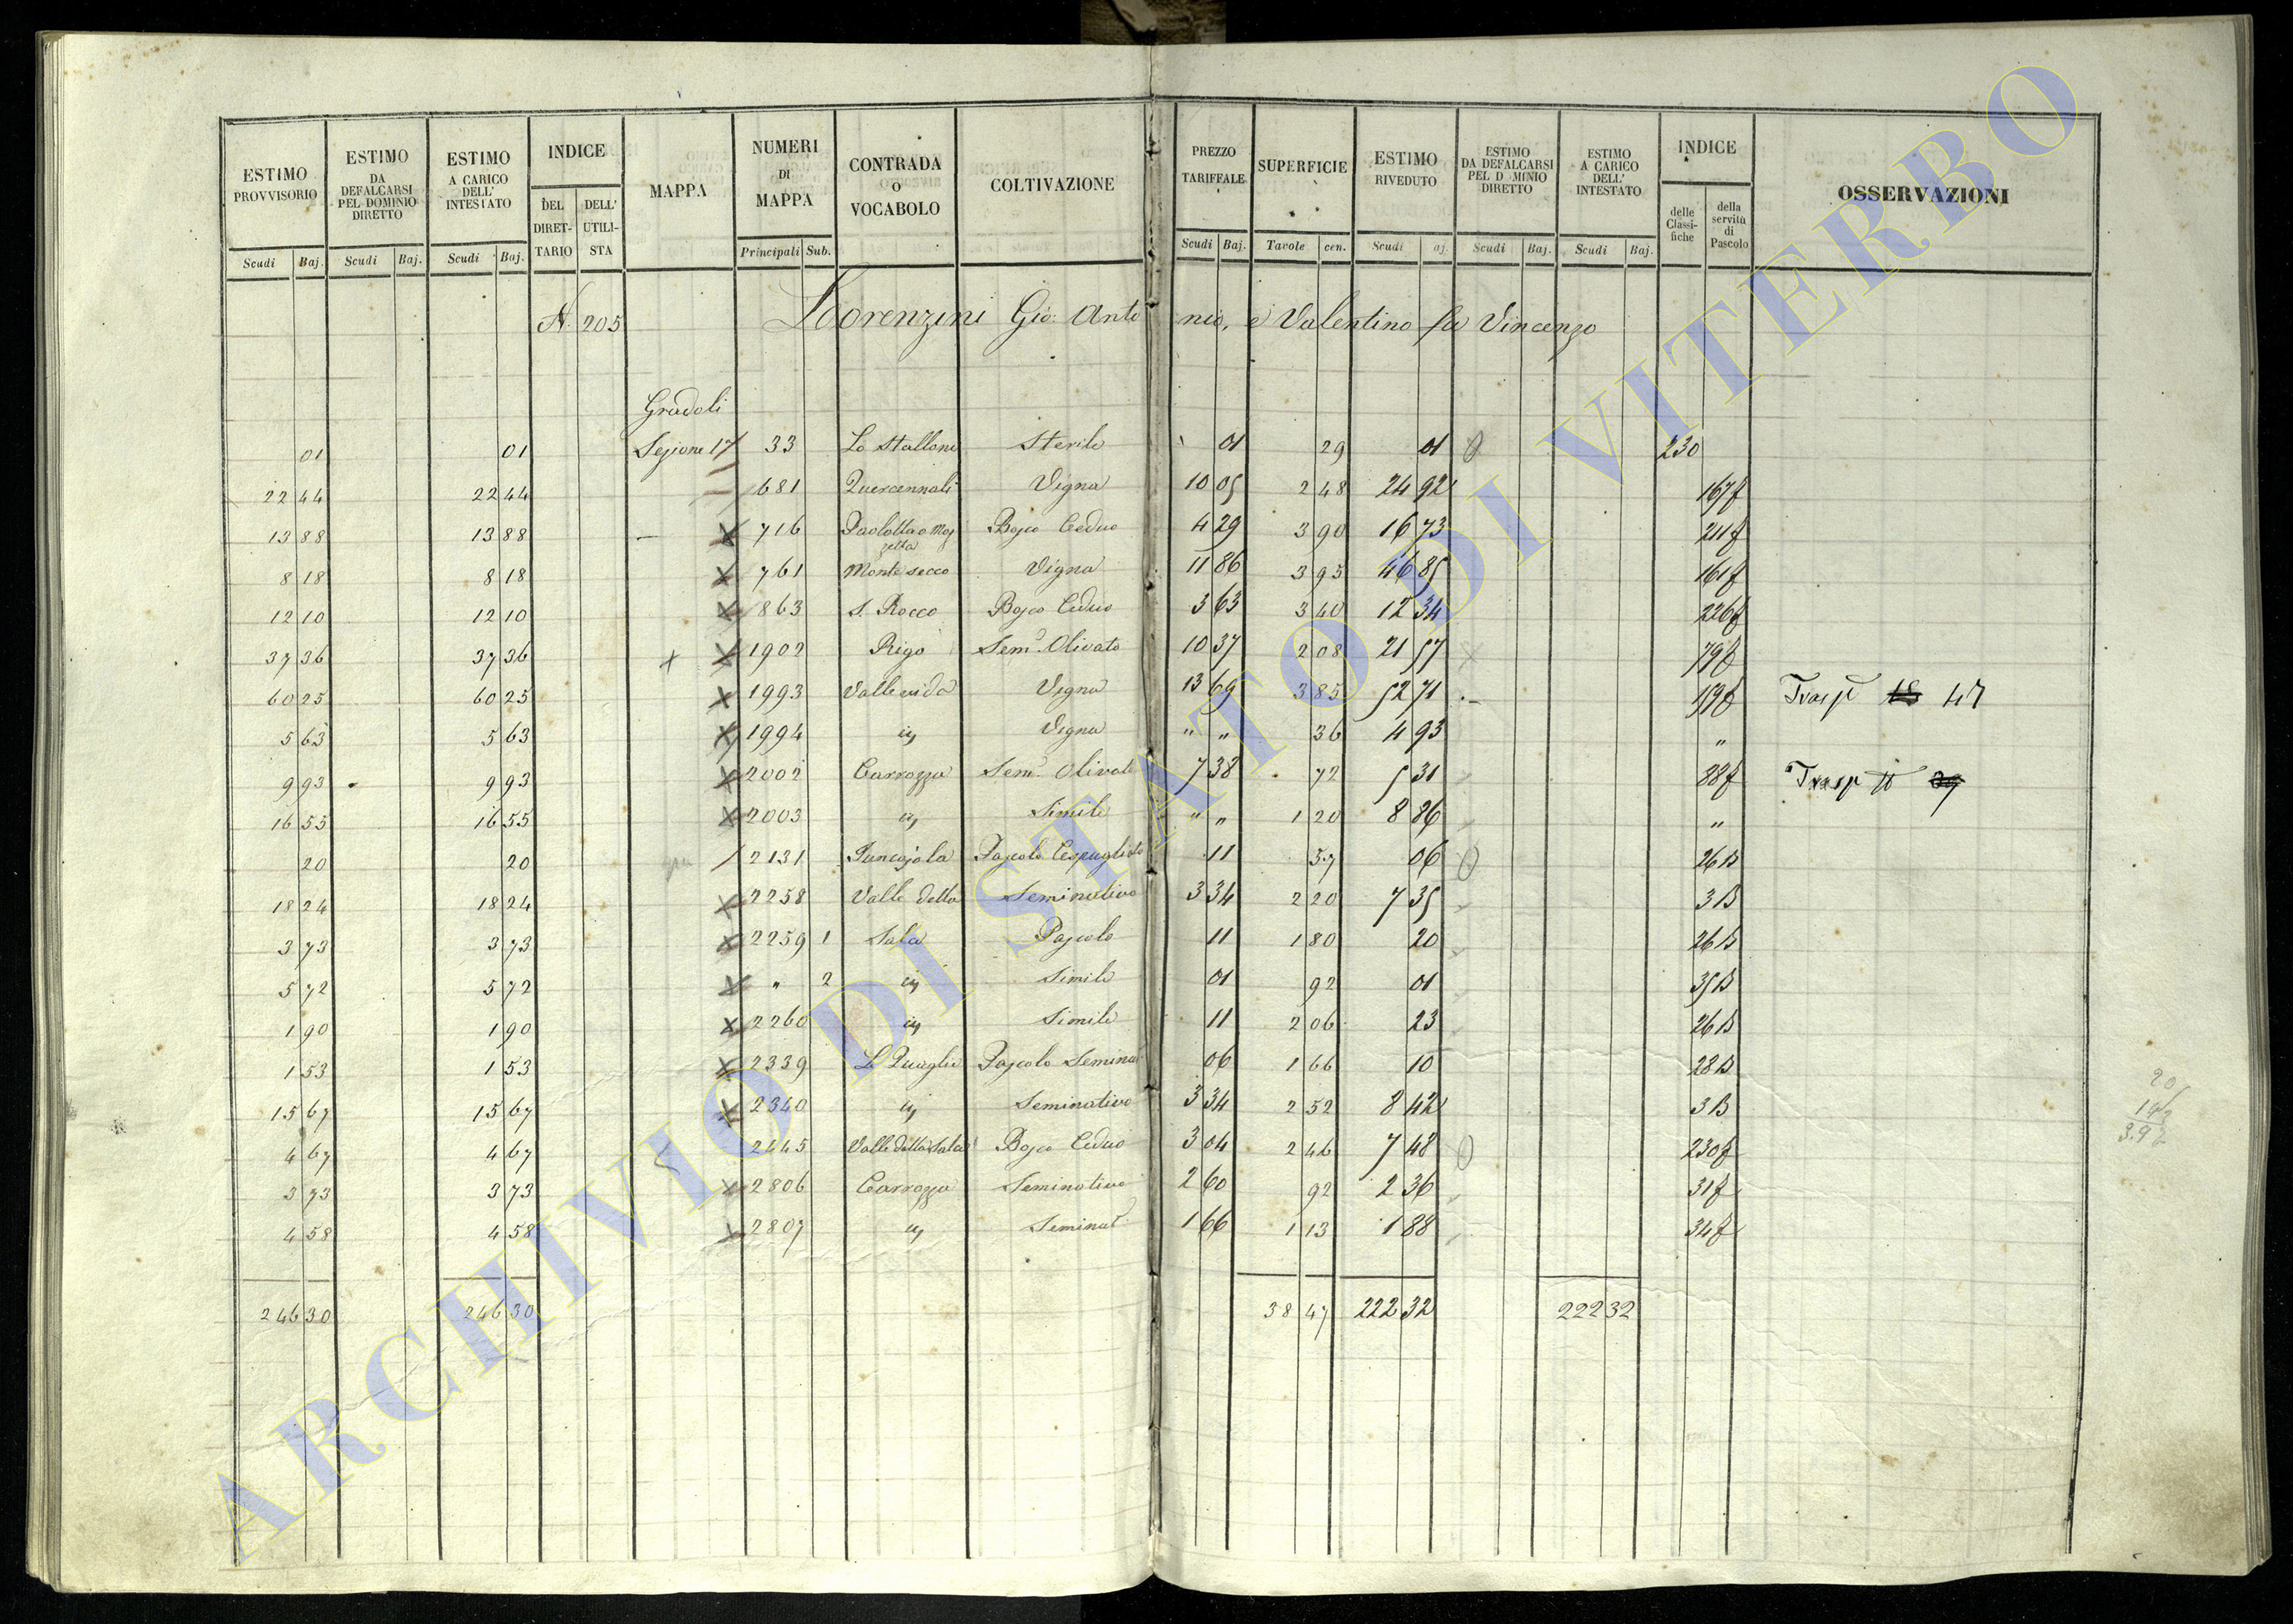 ESTIMO PROVVISORIO | ESTIMO DA DEFALCARSI PEL DOMINIO DIRETTO | ESTIMO A CARICO DELL' INTESTATO | INDICE | MAPPA | NUMERI DI MAPPA | CONTRADA O VOCABOLO | COLTIVAZIONE | PREZZO TARIFFALE | SUPERFICIE | ESTIMO RIVEDUTO | ESTIMO DA DEFALCARSI PEL D MINIO DIRETTO | ESTIMO A CARICO DELL' INTESTATO | INDICE | OSSERVAZIONI
DEL DIRET-TARIO | DELL' UTILI-STA | delle Classi-fiche | della servitù di Pascolo
Scudi | Baj. | Scudi | Baj. | Scudi | Baj. | Principali | Sub. | Scudi | Baj. | Tavole | cen. | Scudi | aj. | Scudi | Baj. | Scudi | Baj.
N. 205 Lorenzini Gio: Antonio, e Valentino fu Vincenzo
Gradoli
01 | 01 | Sezione 1ª | 33 | Lo Stallone | Sterile | 01 | 29 | 01 | 230
22 44 | 22 44 | 681 | Quercennali | Vigna | 10 05 | 2 48 | 24 92 | 167f
13 88 | 13 88 | 716 | Bosco Ceduo | 4 29 | 3 90 | 16 73 | 211f
8 18 | 8 18 | 761 | Monte secco | Vigna | 11 86 | 3 95 | 46 85 | 161f
12 10 | 12 10 | 863 | S. Rocco | Bosco Ceduo | 3 63 | 3 40 | 12 34 | 226f
37 36 | 37 36 | 1902 | Rigo | Semo. Olivato | 10 37 | 2 08 | 21 57 | 79f
60 25 | 60 25 | 1993 | Vallevida | Vigna | 13 69 | 3 85 | 52 71 | 119f | Trasp 18 47
5 63 | 5 63 | 1994 | Vigna | " " | 36 | 4 93 | "
9 93 | 9 93 | 2002 | Carrozza | Semo. Olivato | 7 38 | 72 | 5 31 | 38f | Trasp
16 55 | 16 55 | 2003 | Simile | " " | 1 20 | 8 86 | "
20 | 20 | 2131 | Juncajola | Pascolo Cespugliato | 11 | 57 | 06 | 26B
18 24 | 18 24 | 2258 | Valle della | Seminativo | 3 34 | 2 20 | 7 35 | 3B
3 73 | 3 73 | 2259 1 | Sala | Pascolo | 11 | 1 80 | 20 | 26B
5 72 | 5 72 | " 2 | Simile | 01 | 92 | 01 | 35B
1 90 | 1 90 | 2260 | Simile | 11 | 2 06 | 23 | 26B
1 53 | 1 53 | 2339 | Le Quaglie | Pascolo Seminat | 06 | 1 66 | 10 | 28B
15 67 | 15 67 | 2340 | Seminativo | 3 34 | 2 52 | 8 42 | 3B
4 67 | 4 67 | 2445 | Valle della Sala | Bosco Ceduo | 3 04 | 2 46 | 7 48 | 230f
3 73 | 3 73 | 2806 | Carrozza | Seminativo | 2 60 | 92 | 2 36 | 31f
4 58 | 4 58 | 2807 | Seminat | 1 66 | 1 13 | 1 88 | 34f
246 30 | 246 30 | 38 47 | 222 32 | 222 32
ARCHIVIO DI STATO DI VITERBO